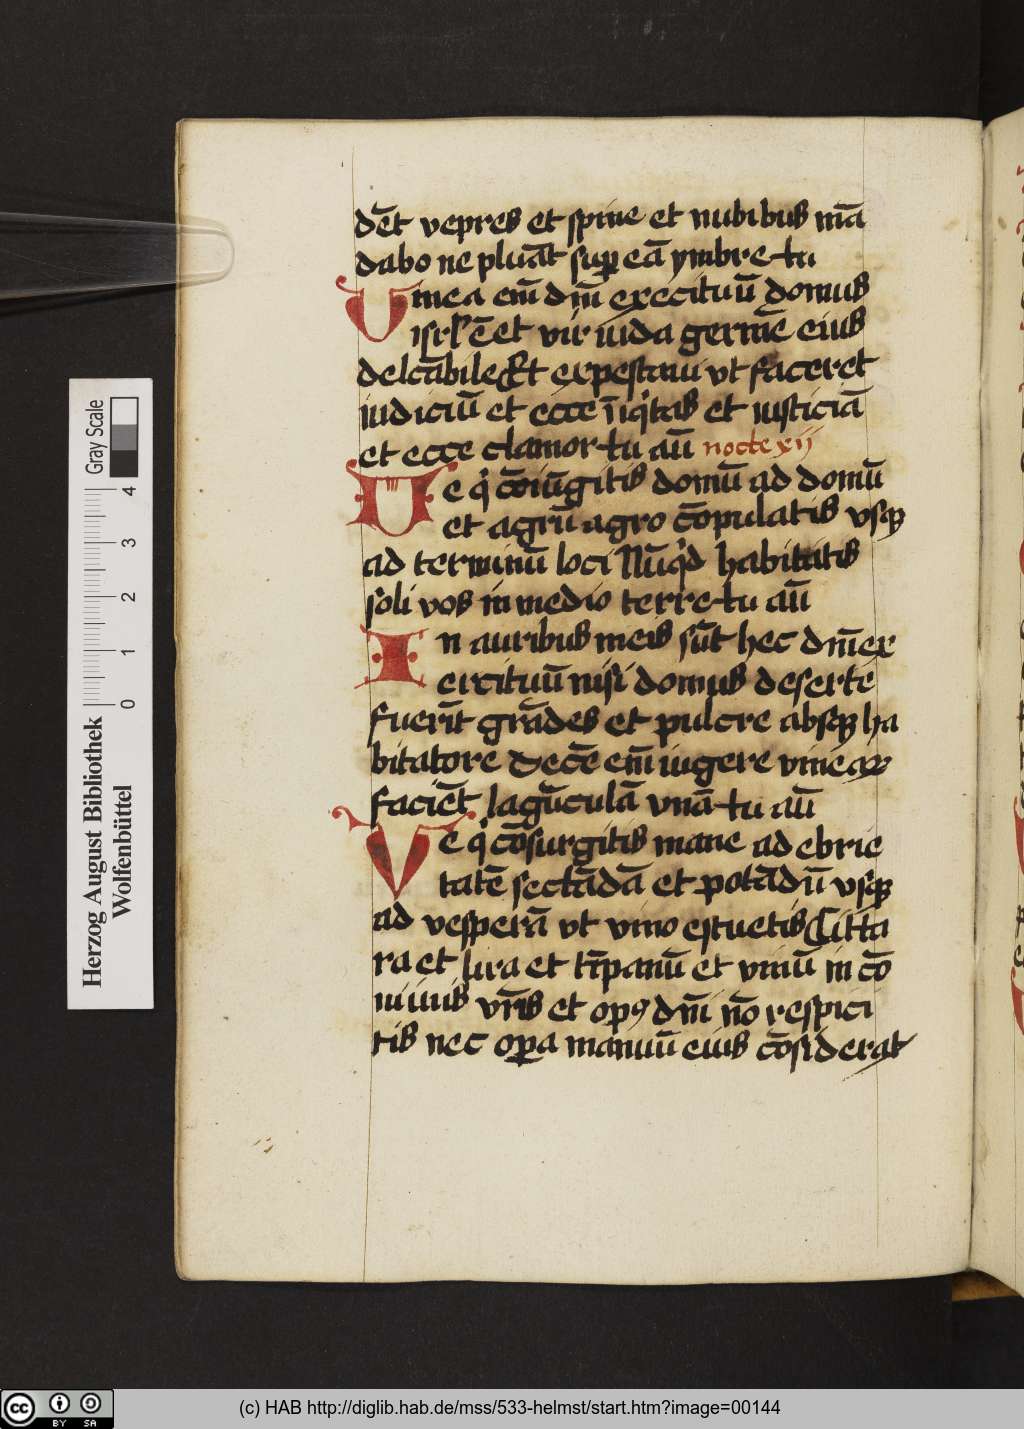 dēt vepres et spine et nubibus mā
dabo ne pluāt sup eā ymbre tu
Uinea em̄ dn̄i exercituū domus
isrl' ē et vir iuda germē eius
delcābile Et expectaui vt faceret
iudiciū et ecce īiq̇tas et iusticiā
et ecce clamor tu aū nocte xij
Ue q̇ cōiūgitis domū ad domū
et agrū agro cōpulatis vsqꝫ
ad terminū loci Nūq̇d habitatis
soli vos in medio terre tu aū
In auribus meis sūt hec dn̄i ex
ercituū nisi domus deserte
fuerīt grādes et pulcre absqꝫ ha
bitatore Decē em̄ iugere vineaꝝ
faciēt lagūculā vnā tu aū
Ve q̇ cōsurgitis mane ad ebrie
tatē sectādā et potādū vsqꝫ
ad vesperā vt vino estuetis Citta
ra et lira et tīpanū et vinū in cō
uiuiis vr̄is et opꝰ dn̄i nō respici
tis nec opa manuū eius cōsiderat
Herzog August Bibliothek
Wolfenbüttel
Gray Scale
0 1 2 3 4
cc BY SA
(c) HAB http://diglib.hab.de/mss/533-helmst/start.htm?image=00144